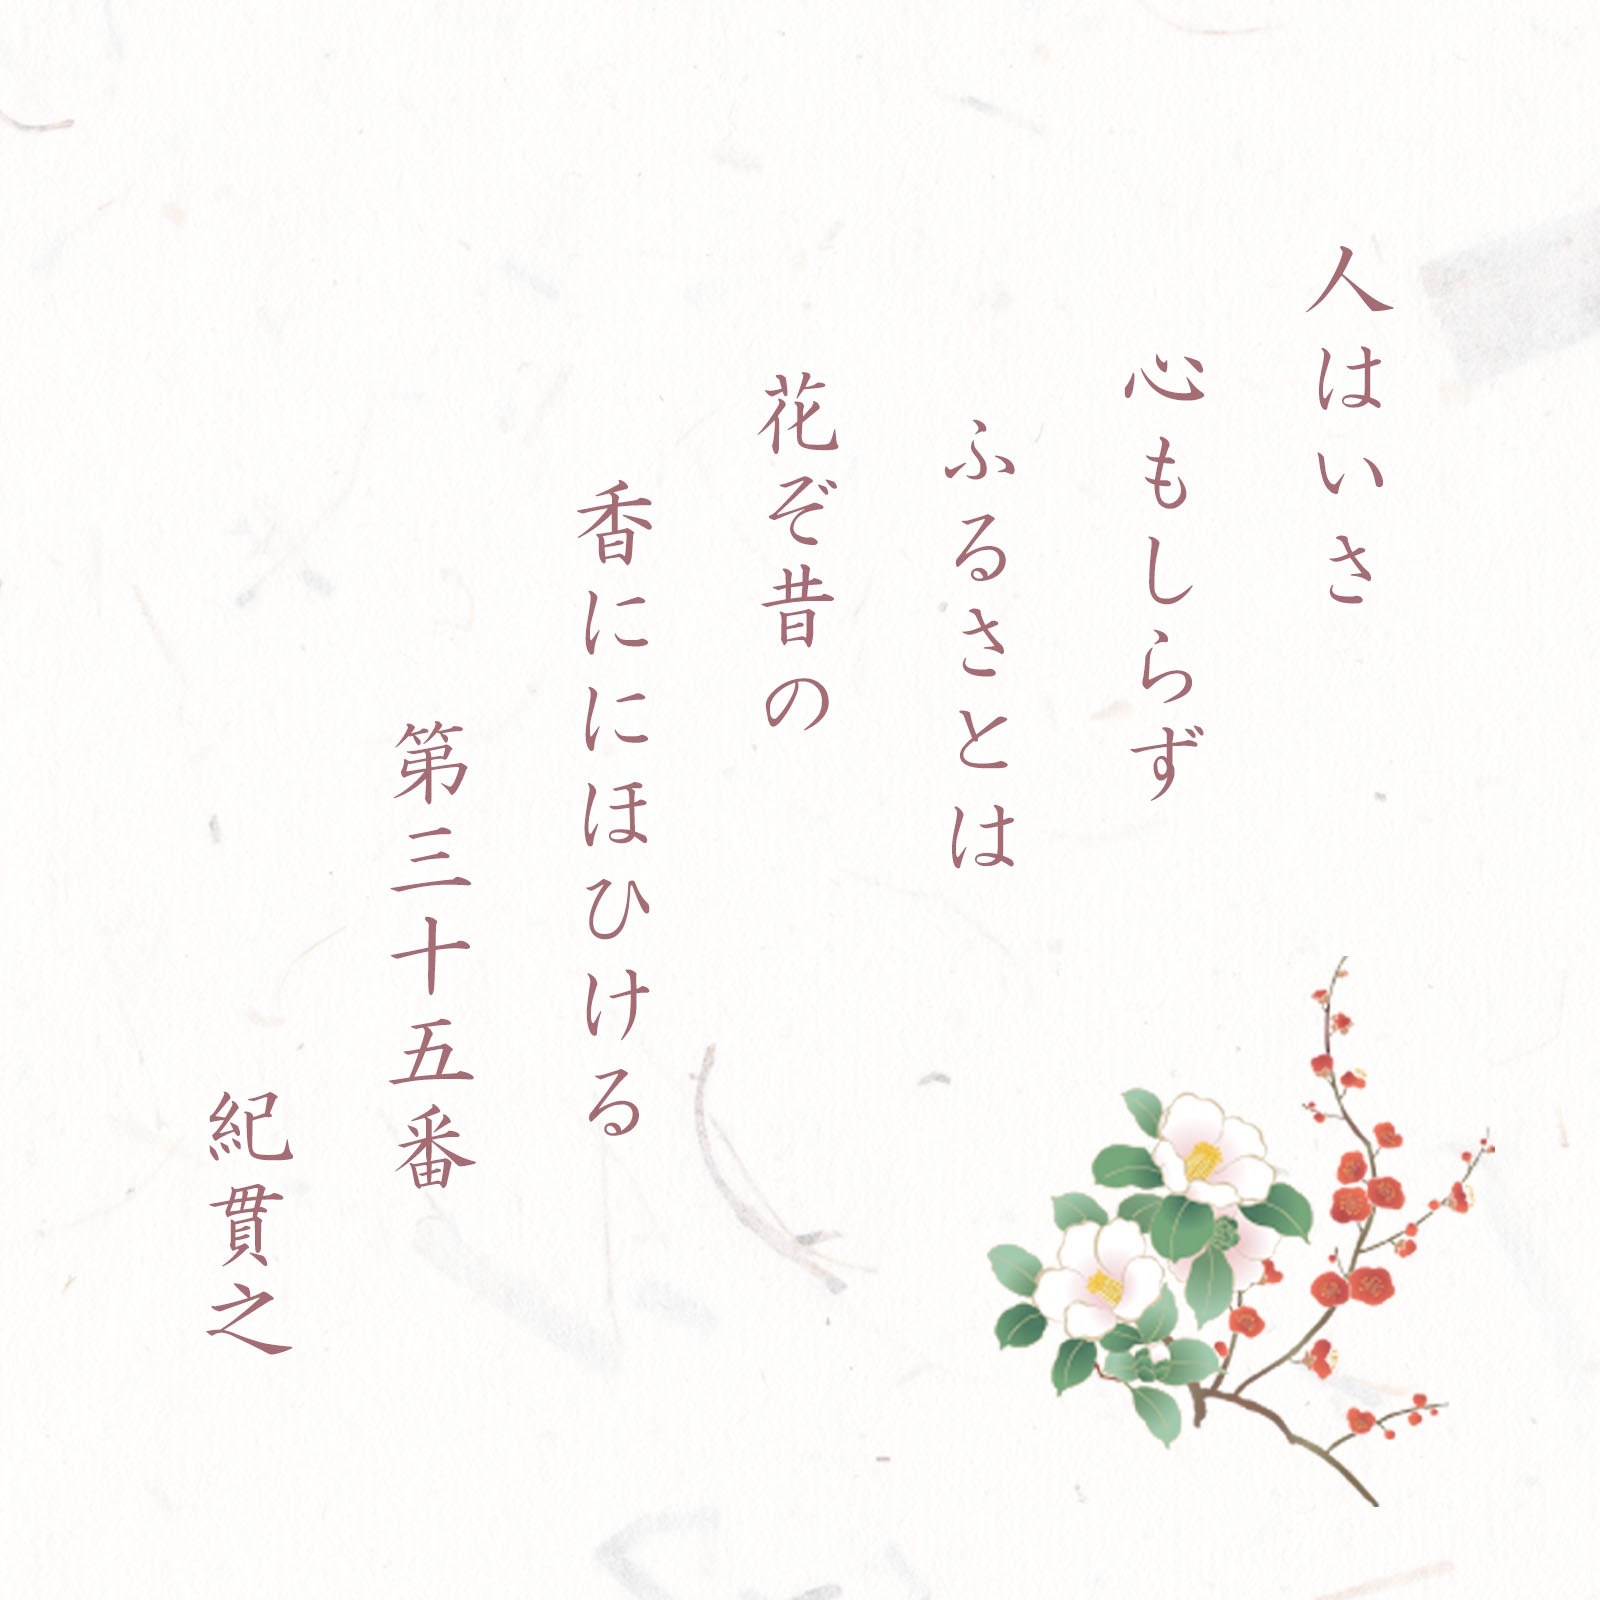 人はいさ
心もしらず
ふるさとは
花ぞ昔の
香ににほひける
第三十五番
紀貫之